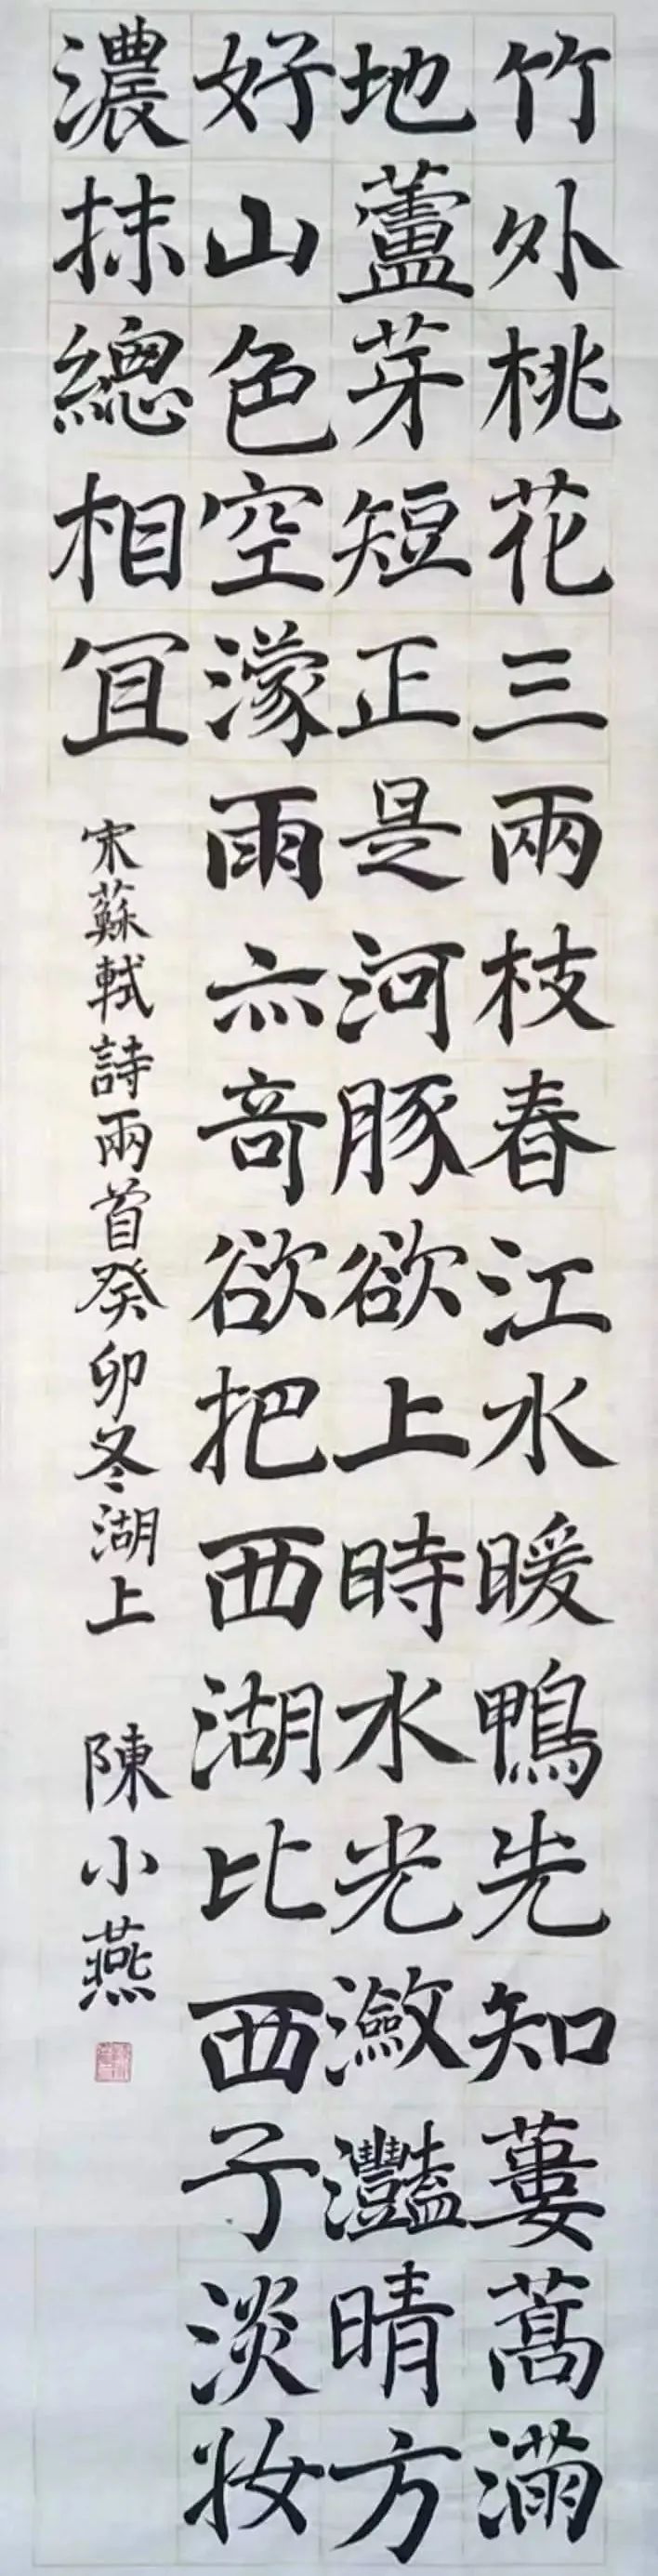 竹外桃花三兩枝春江水暖鴨先知蔞蒿滿
地蘆芽短正是河豚欲上時水光瀲灩晴方
好山色空濛雨亦奇欲把西湖比西子淡妝
濃抹總相宜
宋蘇軾詩兩首癸卯冬湖上 陳小燕